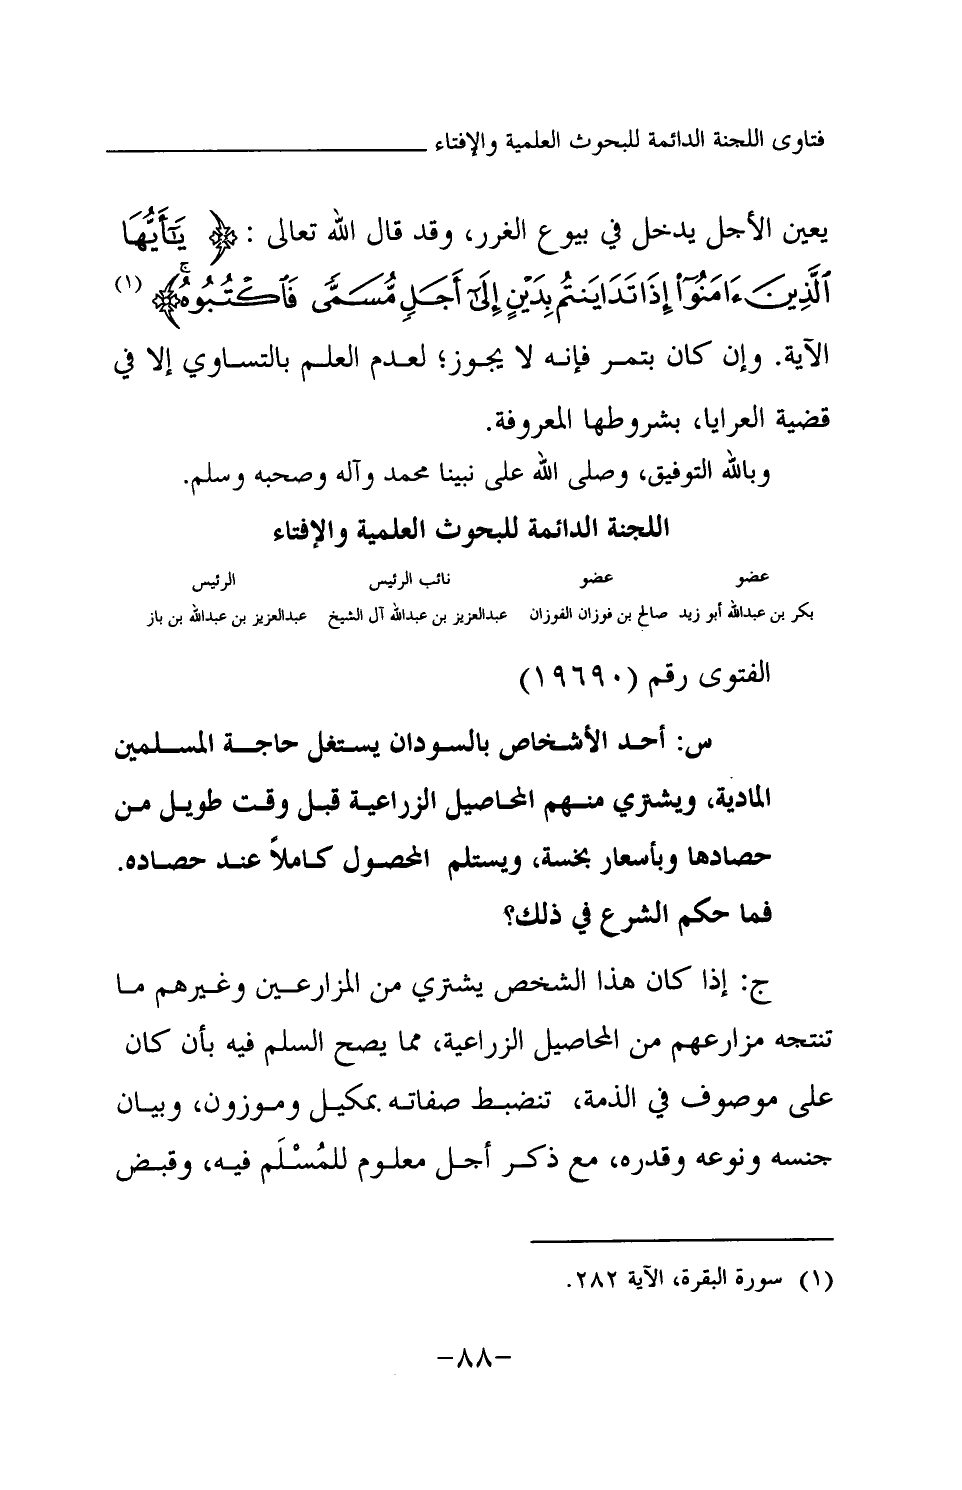 فتاوى اللجنة الدائمة للبحوث العلمية والإفتاء
يعين الأجل يدخل في بيوع الغرر، وقد قال الله تعالى : ﴿ يَٰٓأَيُّهَا
ٱلَّذِينَ ءَامَنُوٓا۟ إِذَا تَدَايَنتُم بِدَيْنٍ إِلَىٰٓ أَجَلٍ مُّسَمًّى فَٱكْتُبُوهُ ۚ ﴾ (١)
الآية. وإن كان بتمر فإنه لا يجوز؛ لعدم العلم بالتساوي إلا في
قضية العرايا، بشروطها المعروفة.
وبالله التوفيق، وصلى الله على نبينا محمد وآله وصحبه وسلم.
اللجنة الدائمة للبحوث العلمية والإفتاء
عضو عضو نائب الرئيس الرئيس
بكر بن عبدالله أبو زيد صالح بن فوزان الفوزان عبدالعزيز بن عبدالله آل الشيخ عبدالعزيز بن عبدالله بن باز
الفتوى رقم (١٩٦٩٠)
س: أحد الأشخاص بالسودان يستغل حاجة المسلمين
المادية، ويشتري منهم المحاصيل الزراعية قبل وقت طويل من
حصادها وبأسعار بخسة، ويستلم المحصول كاملاً عند حصاده.
فما حكم الشرع في ذلك؟
ج: إذا كان هذا الشخص يشتري من المزارعين وغيرهم ما
تنتجه مزارعهم من المحاصيل الزراعية، مما يصح السلم فيه بأن كان
على موصوف في الذمة، تنضبط صفاته بمكيل وموزون، وبيان
جنسه ونوعه وقدره، مع ذكر أجل معلوم للمُسْلَم فيه، وقبض
(١) سورة البقرة، الآية ٢٨٢.
-٨٨-